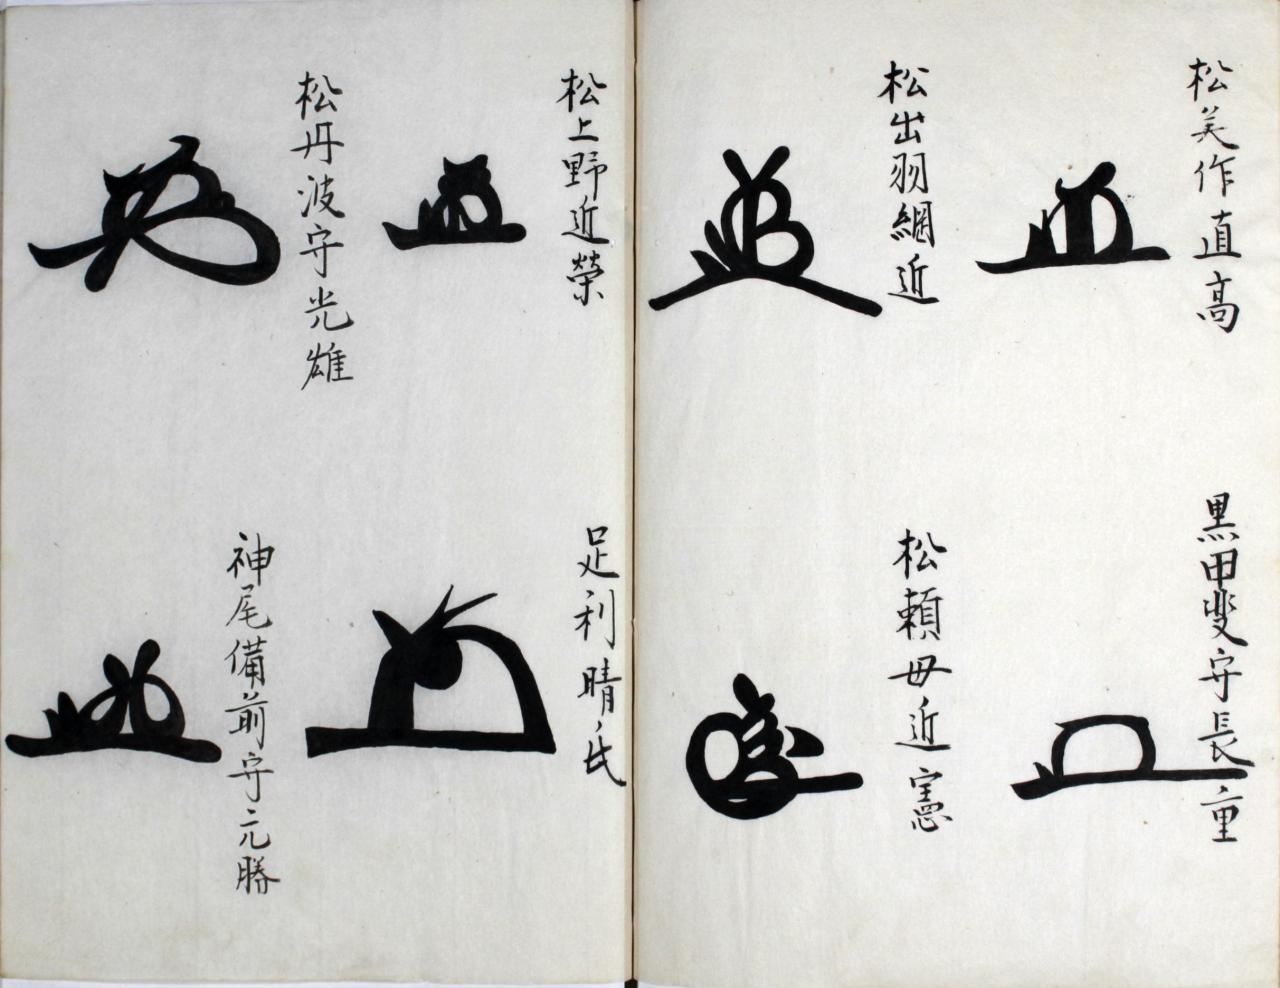 松美作直高
黒甲斐守長重
松出羽綱近
松頼母近憲
松上野近榮
足利晴氏
松丹波守光雄
神尾備前守元勝